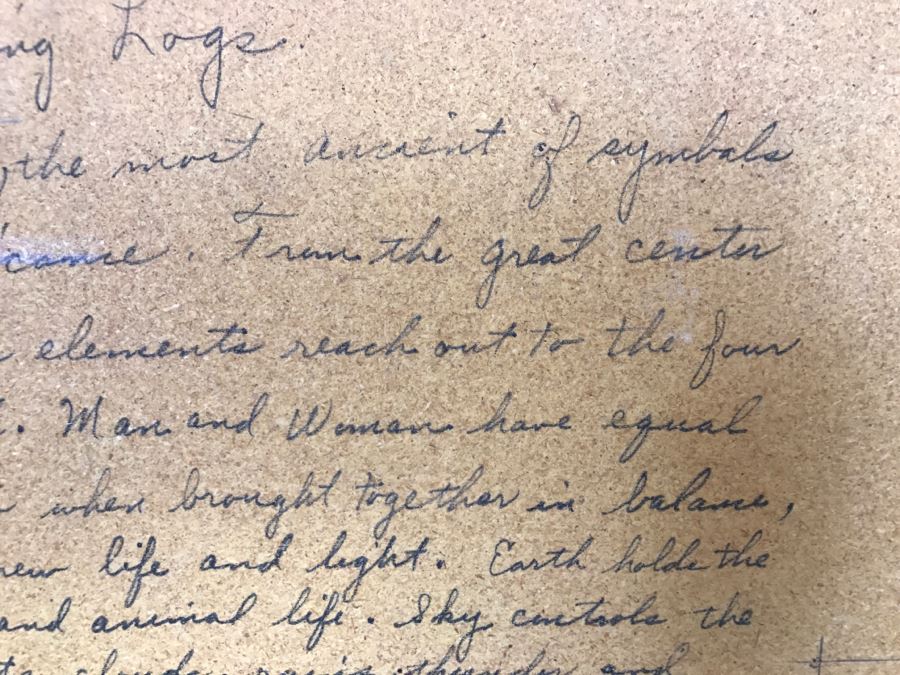 ng Logs.
, the most ancient of symbols
came. From the great center
elements reach out to the four
. Man and Woman have equal
when brought together in balance,
new life and light. Earth holds the
and animal life. Sky controls the
clouds, rain, thunder and